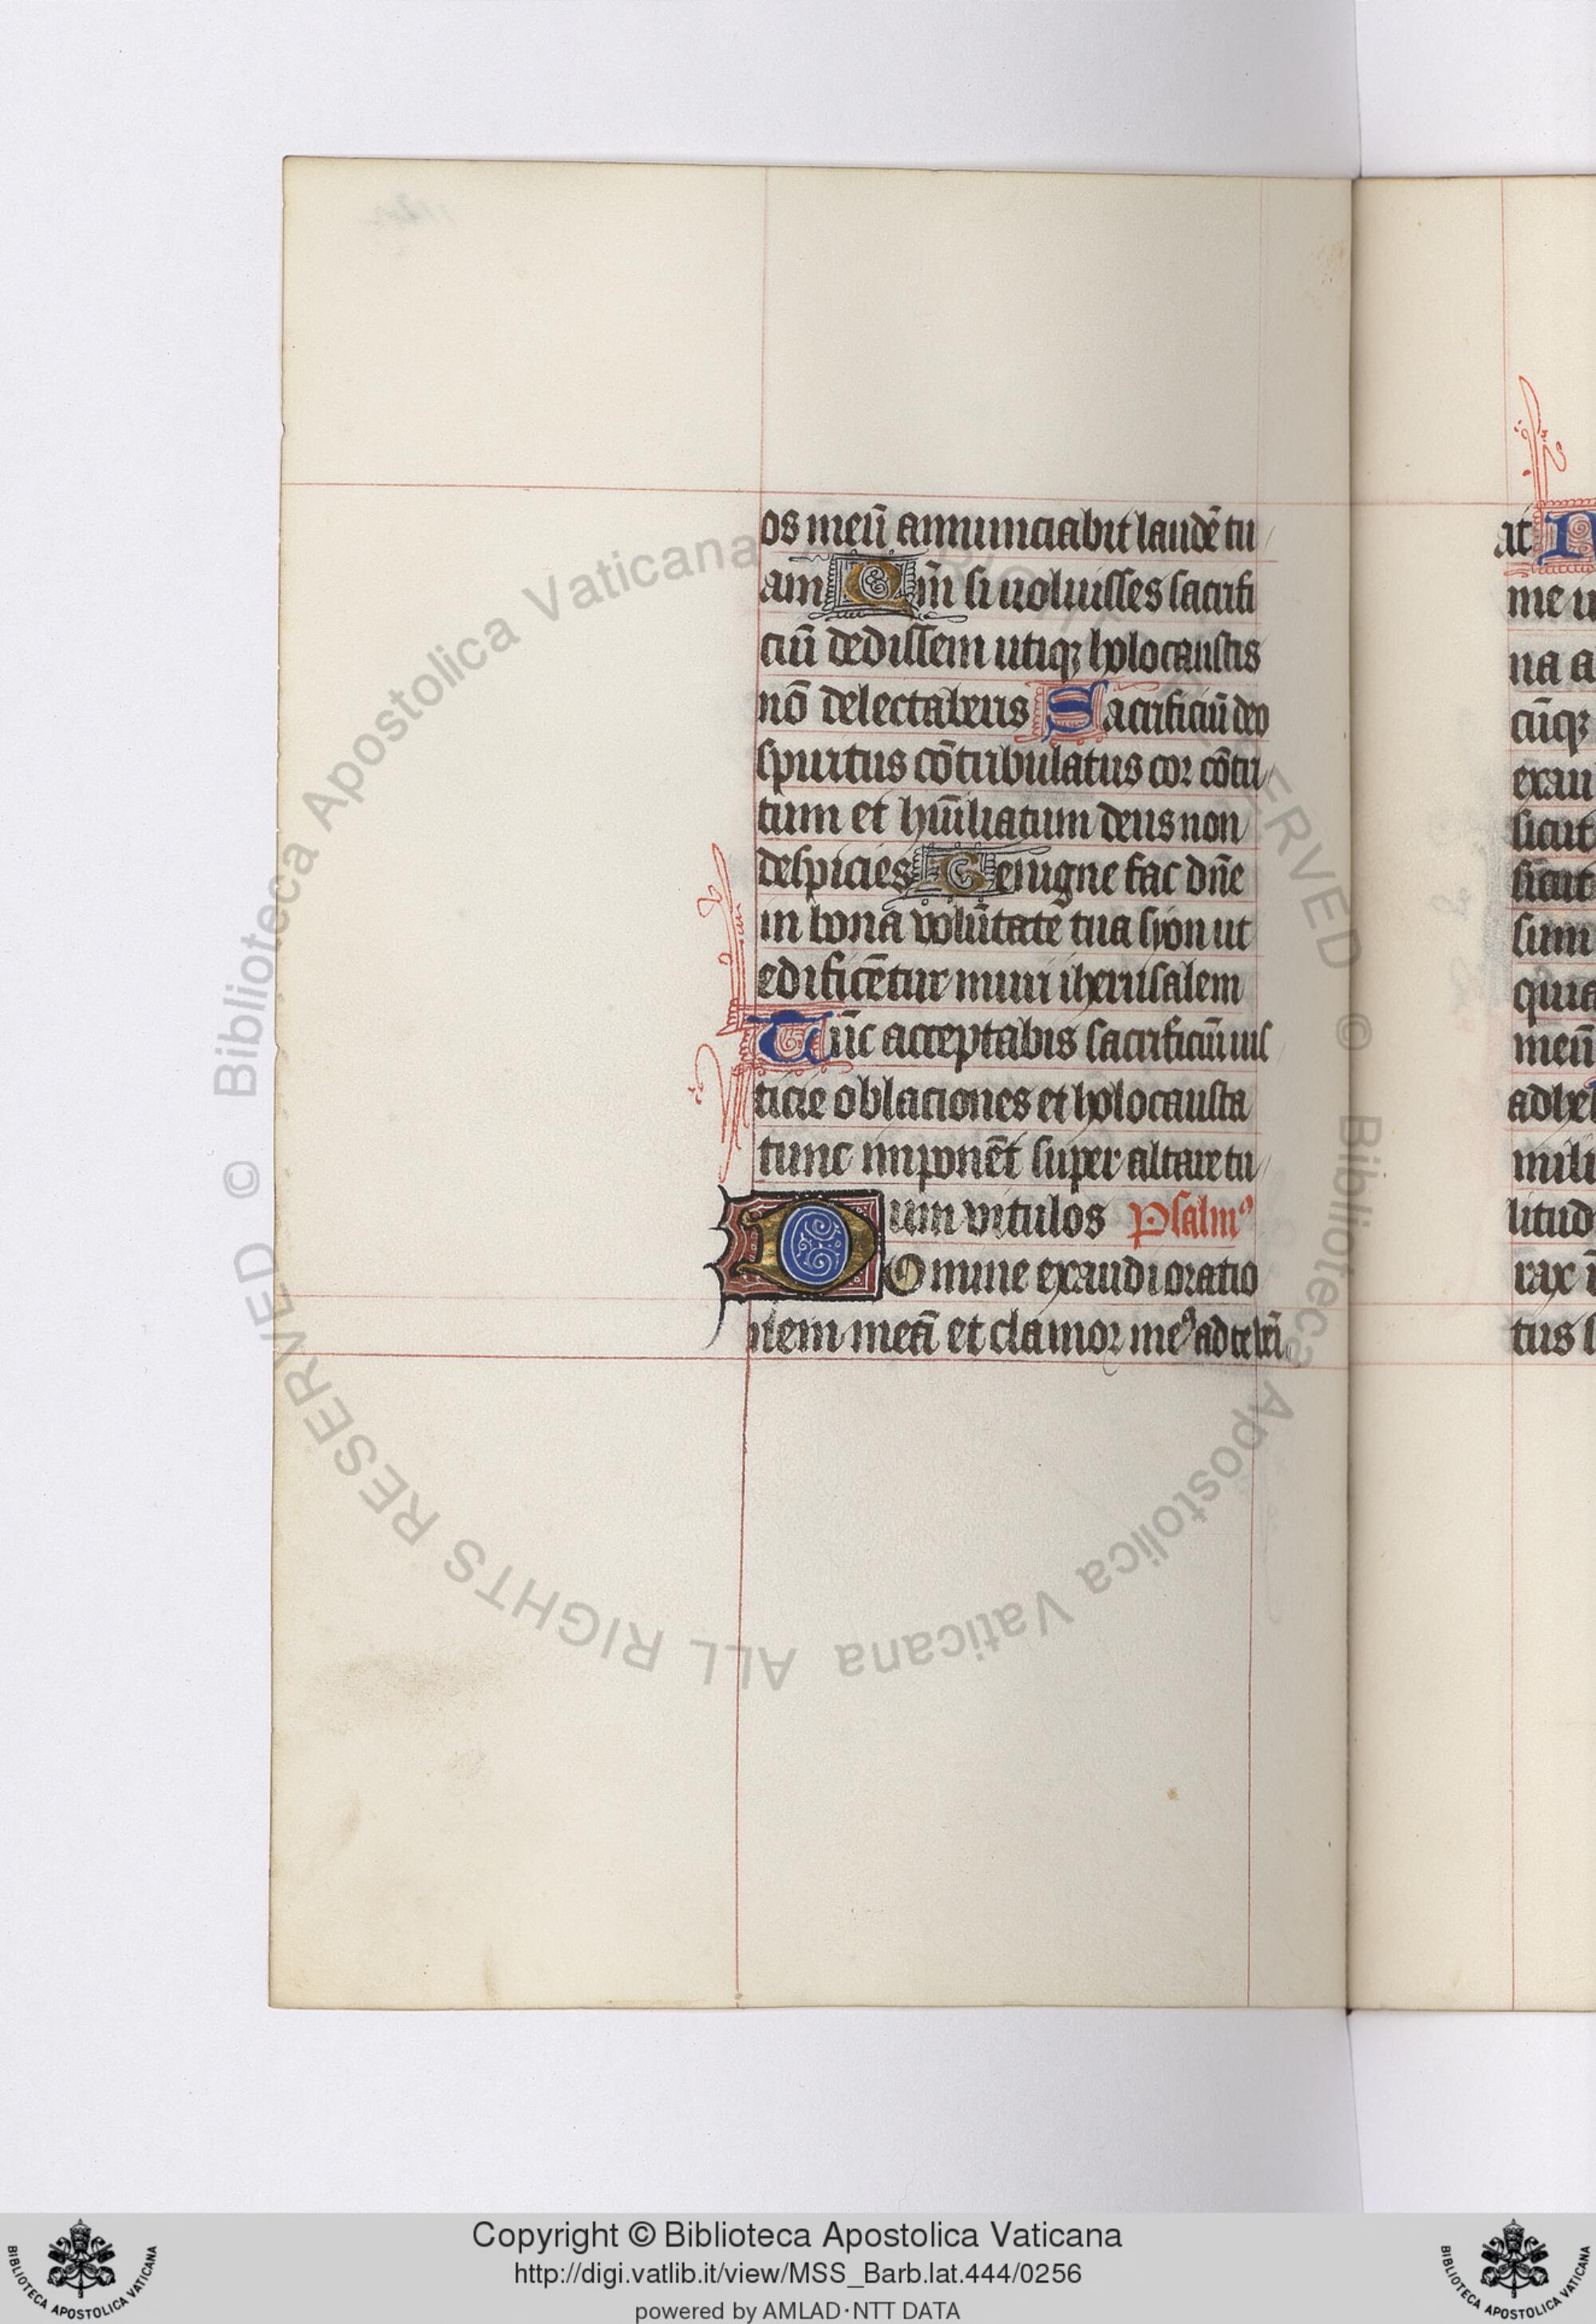 os meū annunciabit laudē tu
am Qm̄ si uoluisses sacrifi
ciū dedissem utiqꝫ holocaustis
nō delectaberis Sacrificiū deo
spiritus cōtribulatus cor cōtri
tum et humiliatum deus non
despicies Benigne fac dn̄e
in bona volūtate tua syon ut
edificētur muri iherusalem
Tūc acceptabis sacrificiū ius
ticie oblaciones et holocausta
tunc imponēt super altare tu
um vitulos Psalmꝰ
Domine exaudi oratio
nem meā et clamor meꝰ ad te veī
at
me
na a
cūqꝫ
exau
sicut
sicut
sum
quia
meū
adhe
mili
litud
rax
tus
© Biblioteca Apostolica Vaticana ALL RIGHTS RESERVED
© Biblioteca Apostolica Vaticana ALL RIGHTS RESERVED
BIBLIOTECA APOSTOLICA VATICANA
Copyright © Biblioteca Apostolica Vaticana
http://digi.vatlib.it/view/MSS_Barb.lat.444/0256
powered by AMLAD·NTT DATA
BIBLIOTECA APOSTOLICA VATICANA